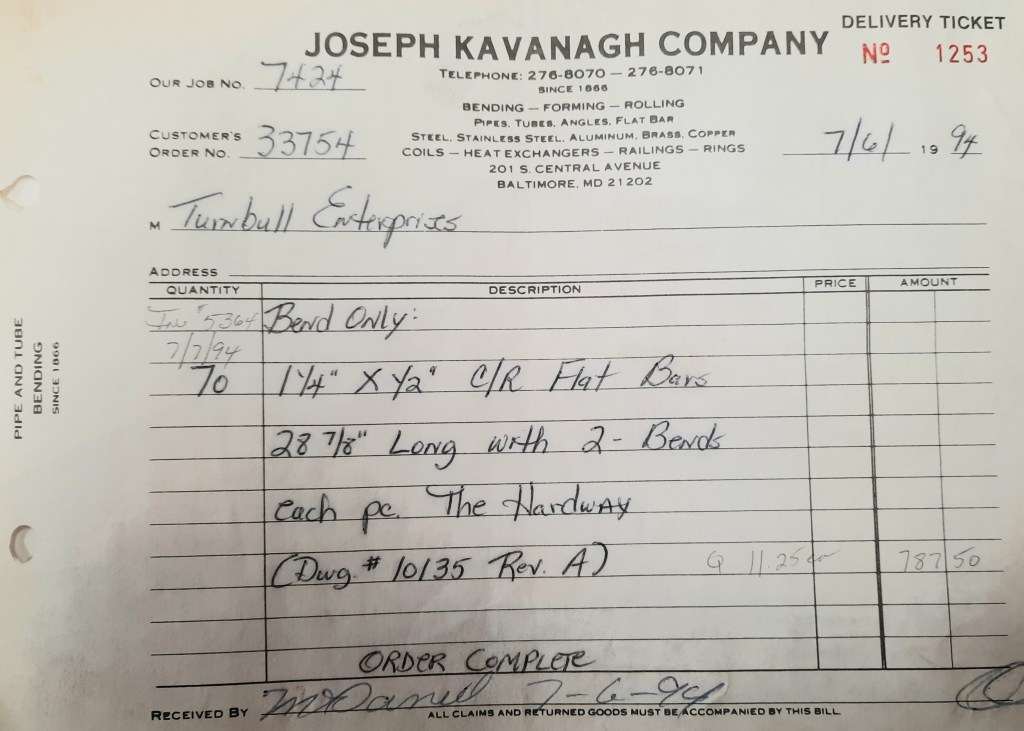 DELIVERY TICKET
JOSEPH KAVANAGH COMPANY
Nº 1253
OUR JOB NO. 7424
TELEPHONE: 276-8070 — 276-8071
SINCE 1866
BENDING — FORMING — ROLLING
PIPES, TUBES, ANGLES, FLAT BAR
CUSTOMER'S
ORDER NO. 33754
STEEL, STAINLESS STEEL, ALUMINUM, BRASS, COPPER
COILS — HEAT EXCHANGERS — RAILINGS — RINGS
7/6/ 19 94
201 S. CENTRAL AVENUE
BALTIMORE, MD 21202
M Turnbull Enterprises
ADDRESS
QUANTITY DESCRIPTION PRICE AMOUNT
Inv # 5364 Bend Only:
7/7/94
70 1 1/4" X 1/2" C/R Flat Bars
28 7/8" Long with 2 - Bends
each pc. The Hardway
(Dwg. # 10135 Rev. A) @ 11.25 ea 787 50
ORDER COMPLETE
RECEIVED BY McDaniel 7-6-94
ALL CLAIMS AND RETURNED GOODS MUST BE ACCOMPANIED BY THIS BILL
PIPE AND TUBE
BENDING
SINCE 1866